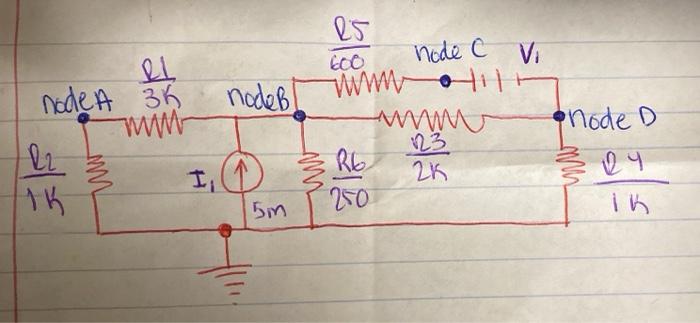 R5
600
node C
V1
R1
3K
node A
node B
node D
R2
1K
I1
5m
R6
250
R3
2K
R4
1K